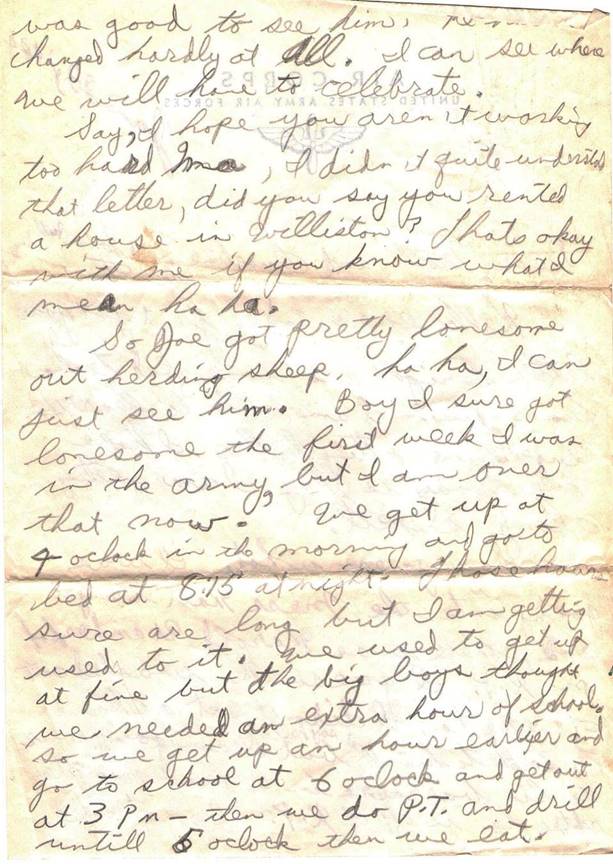 was good to see him,
changed hardly at all. I can see where
we will have to celebrate.
Say, I hope you aren't working
too hard Ima, I didn't quite understa
that letter, did you say you rented
a house in Williston? Thats okay
with me if you know what I
mean ha ha.
So Joe got pretty lonesome
out herding sheep. ha ha, I can
just see him. Boy I sure got
lonesome the first week I was
in the army, but I am over
that now. We get up at
4 oclock in the morning and go to
bed at 8:15 at night. Those hours
sure are long but I am getting
used to it. We used to get up
at five but the big boys thought
we needed an extra hour of school,
so we get up an hour earlier and
go to school at 6 oclock and get out
at 3 Pm - then we do P.T. and drill
untill 5 oclock then we eat.